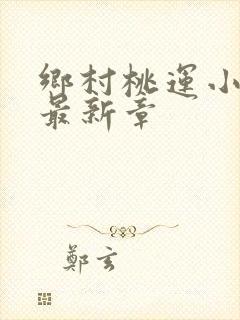 鄉村桃運小
最新章
鄭玄